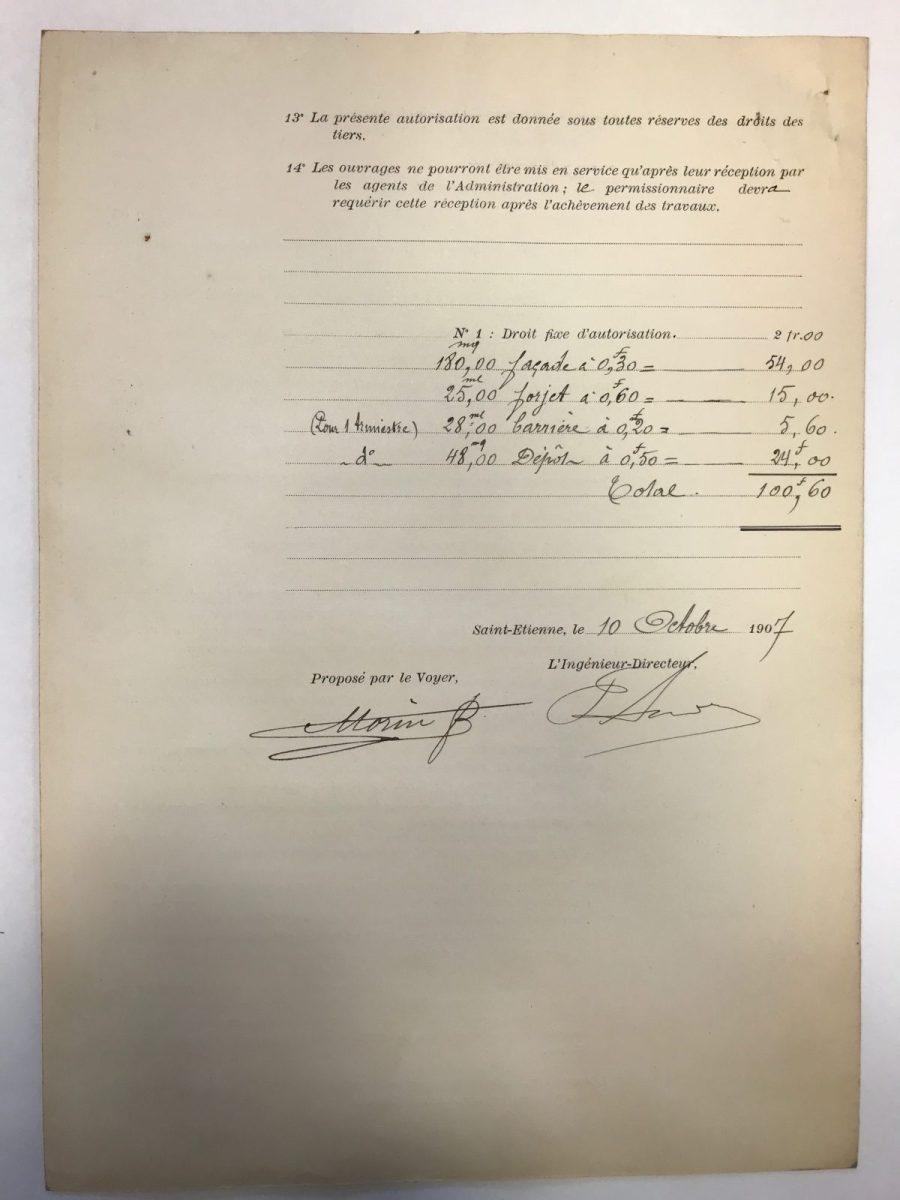 13° La présente autorisation est donnée sous toutes réserves des droits des
tiers.
14° Les ouvrages ne pourront être mis en service qu'après leur réception par
les agents de l'Administration ; le permissionnaire devra
requérir cette réception après l'achèvement des travaux.
N° 1 : Droit fixe d'autorisation. 2 fr.00
180,00 mq façade à 0f,30 = 54,00
25,00 ml forjet à 0f,60 = 15,00.
(Pour 1 trimestre) 28,00 ml barrière à 0f,20 = 5,60.
- d° - 48,00 mq Dépôt à 0f,50 = 24f,00
Total. 100f,60
Saint-Etienne, le 10 Octobre 1907
L'Ingénieur-Directeur,
Proposé par le Voyer,
Morin B.